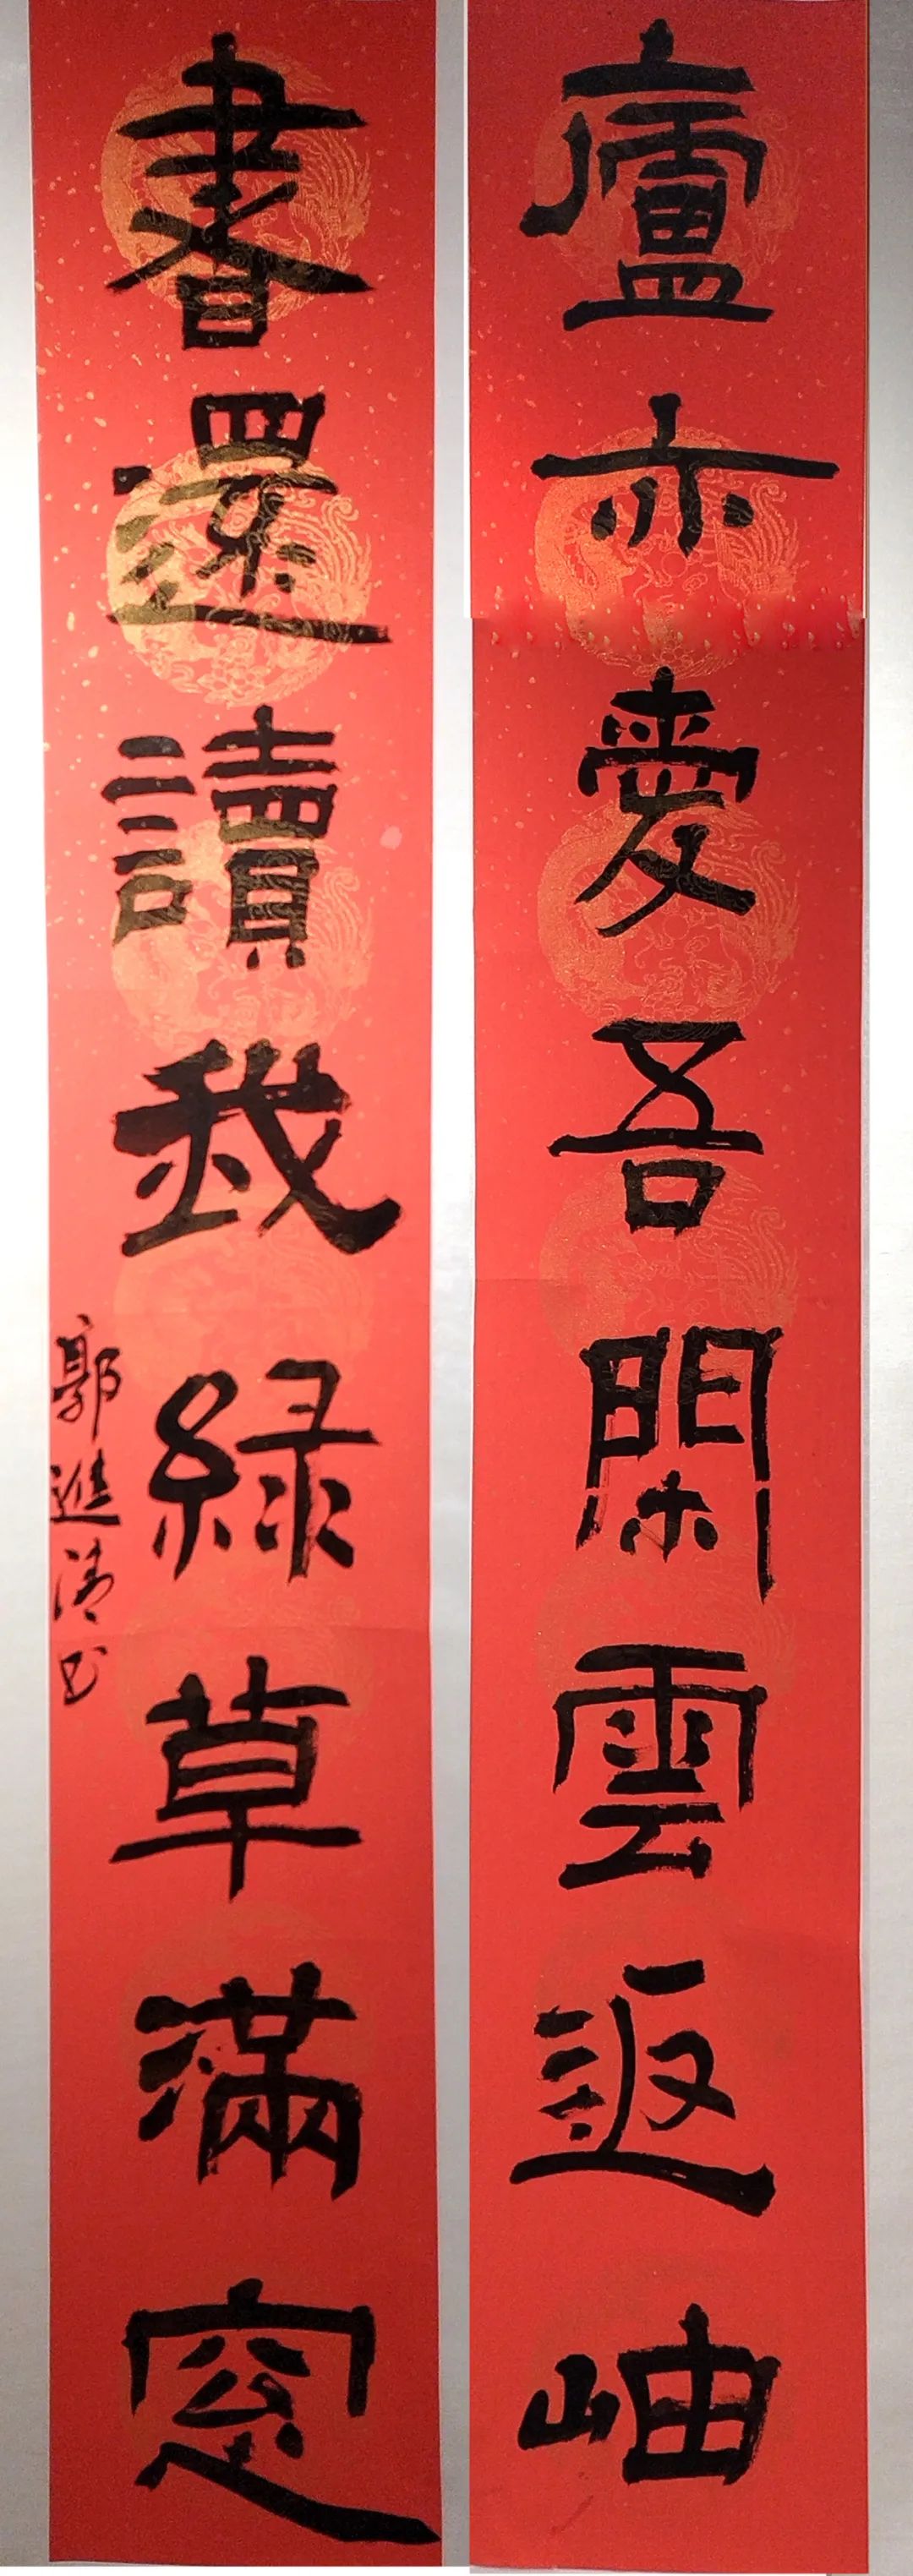 廬亦愛吾閑雲返岫
書還讀我緑草滿窓
郭進清书